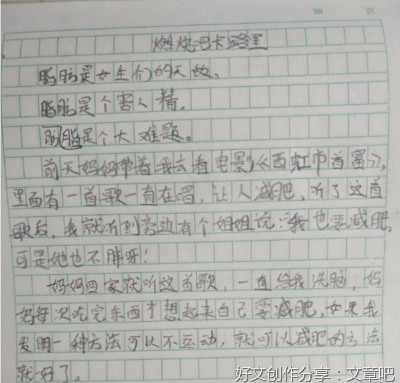 第 页
燃烧吧卡路里
脂肪是女生们的天敌。
脂肪是个害人精。
减脂是个大难题。
前天妈妈带着我去看电影《西虹市首富》,
里面有一首歌一直在唱,让人减肥,听了这首
歌后,我就听到旁边有个姐姐说:"我也要减肥,
可是她也不胖呀!
妈妈回家就听这首歌,一直给我洗脑,妈
妈每次吃完东西才想起来自己要减肥,如果我
发明一种方法可以不运动,就可以减肥的方法
就好了。
好文创作分享:文章吧